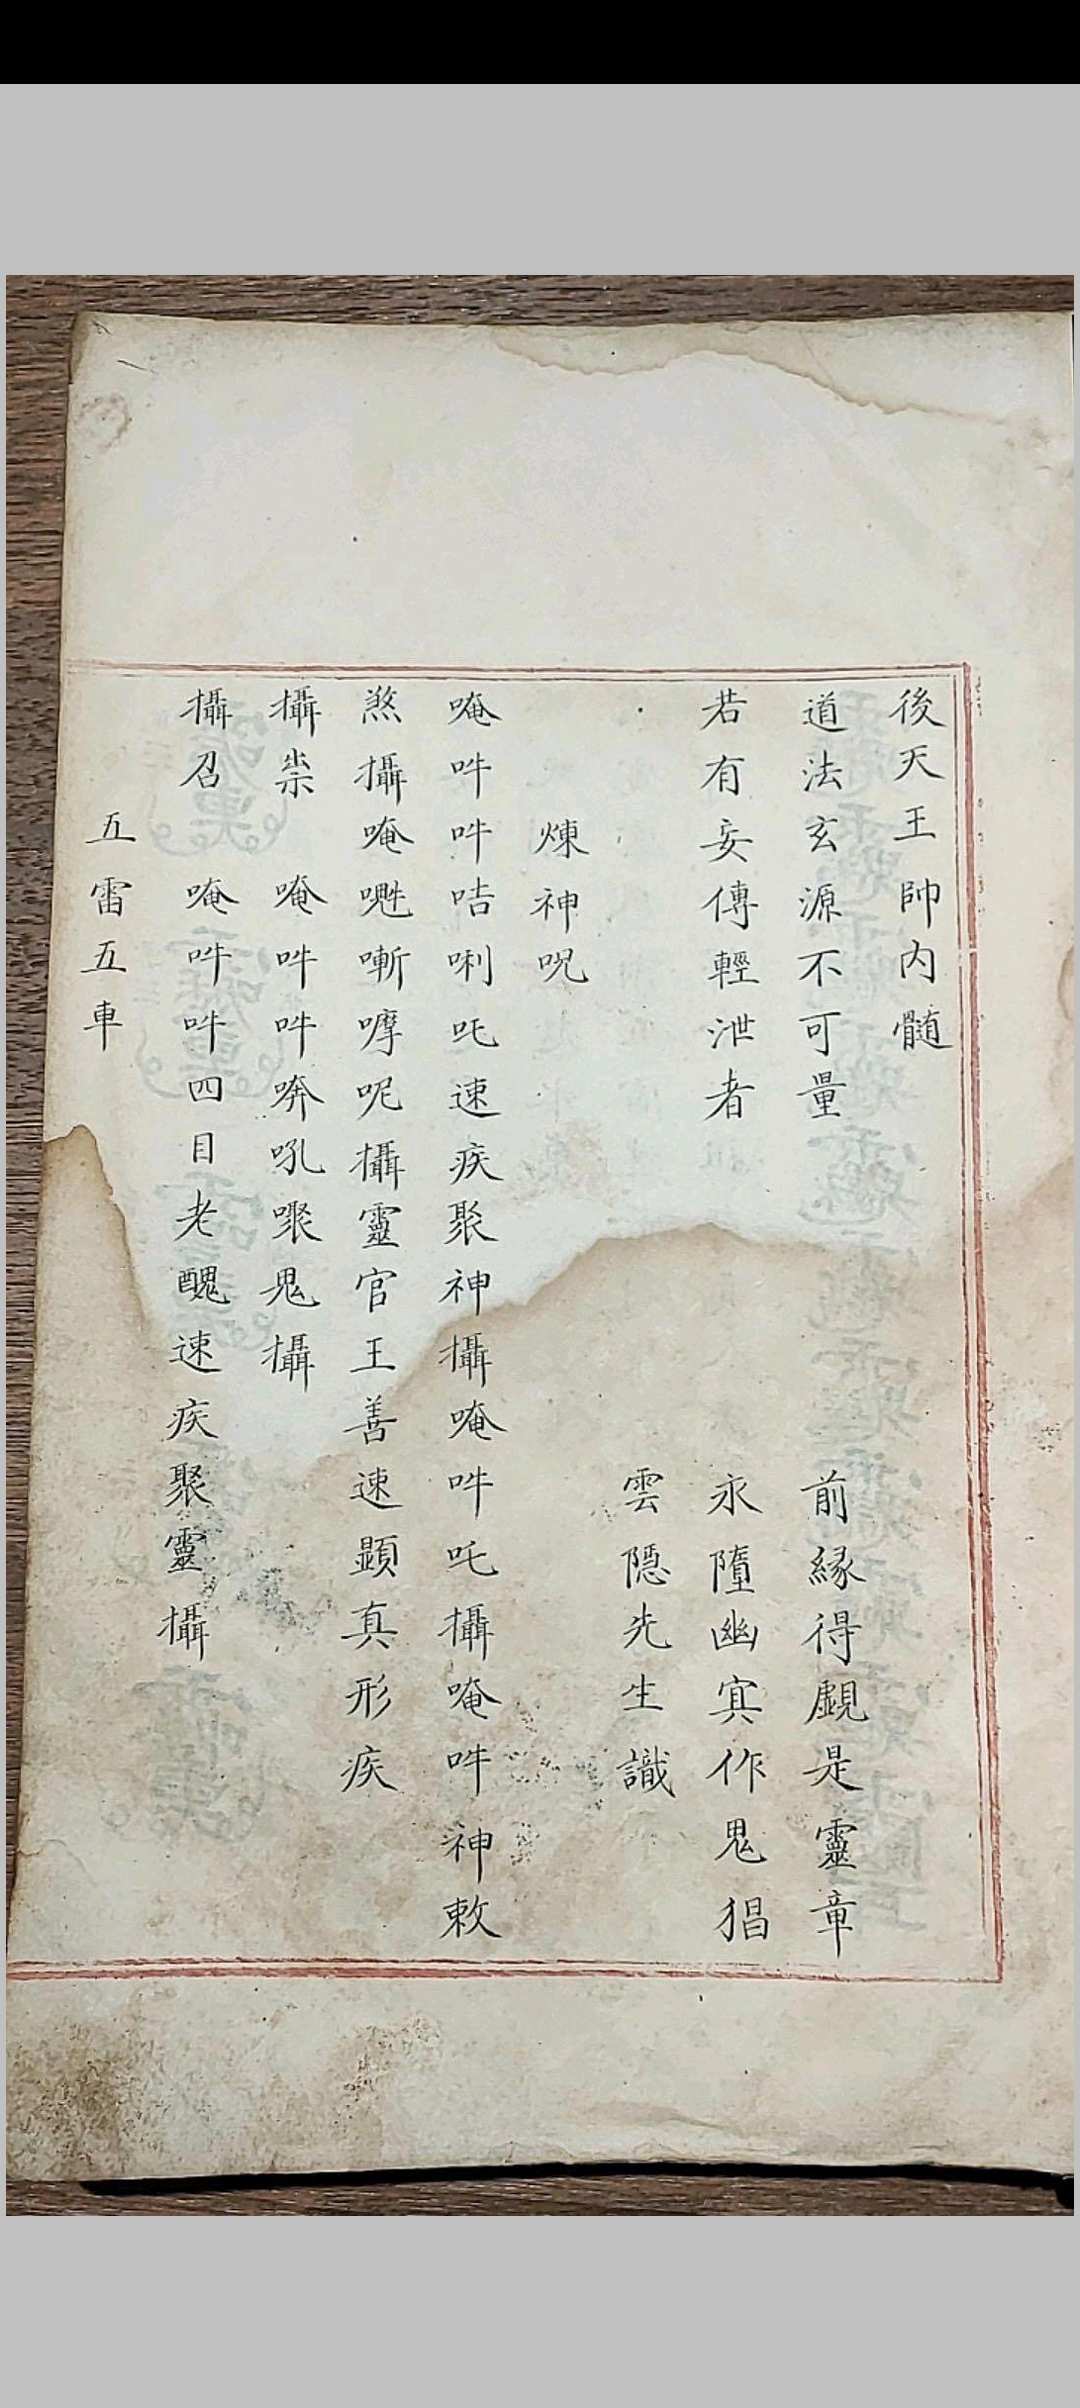 後天王帥內髓
道法玄源不可量　前緣得覩是靈章
若有妄傳輕泄者　永墮幽冥作鬼猖
雲隱先生識
煉神呪
唵吽吽咭唎吒速疾聚神攝唵吽吒攝唵吽神敕
煞攝唵嚪㘄嚤呢攝靈官王善速顕真形疾
攝祟　唵吽吽𠹀吼㗱鬼攝
攝召　唵吽吽四目老醜速疾聚靈攝
五雷五車